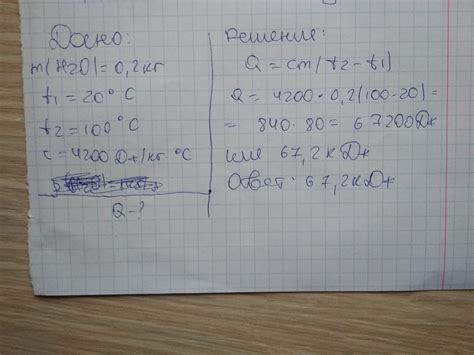 Дано:
m(H2O)=0,2кг
t1=20°C
t2=100°C
c=4200Дж/кг °C
Q-?
Решение:
Q=cm(t2-t1)
Q=4200·0,2(100-20)=
=840·80=67200Дж
или 67,2кДж
Ответ: 67,2кДж